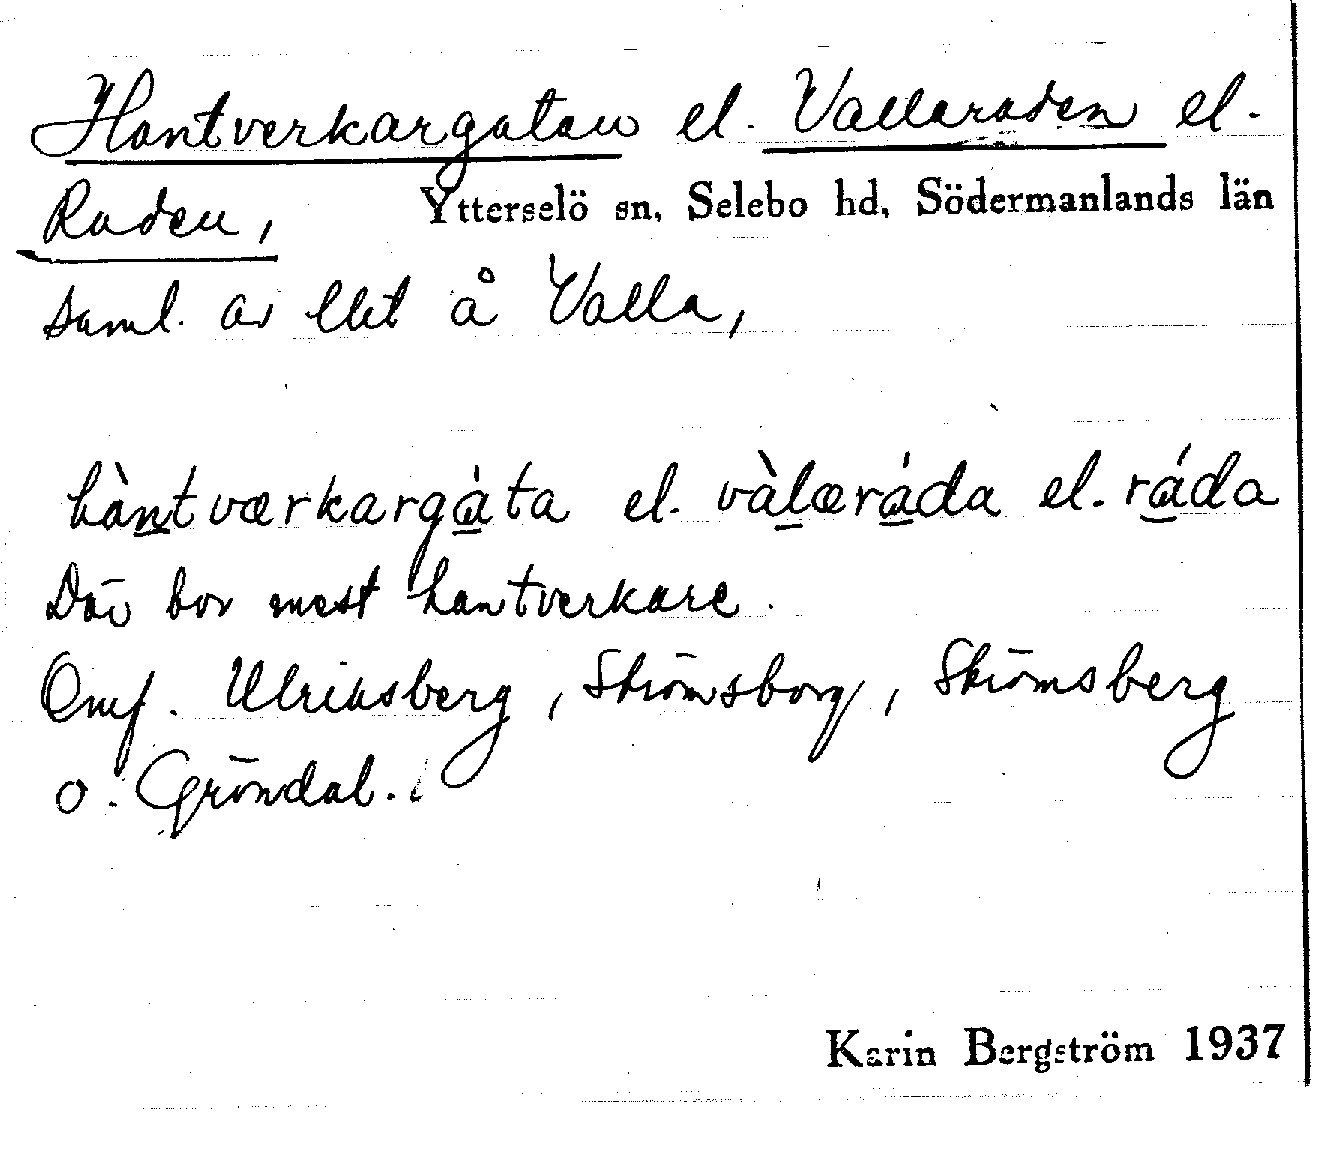 Hantverkargatan el. Vallaraden el.
Raden, Ytterselö sn, Selebo hd, Södermanlands län
saml. av lht å Valla,
hàntværkargàta el. vàlæráda el. ráda
Där bor mest hantverkare.
Omf. Ulriksberg, Strömsborg, Strömsberg
o. Gröndal.
Karin Bergström 1937